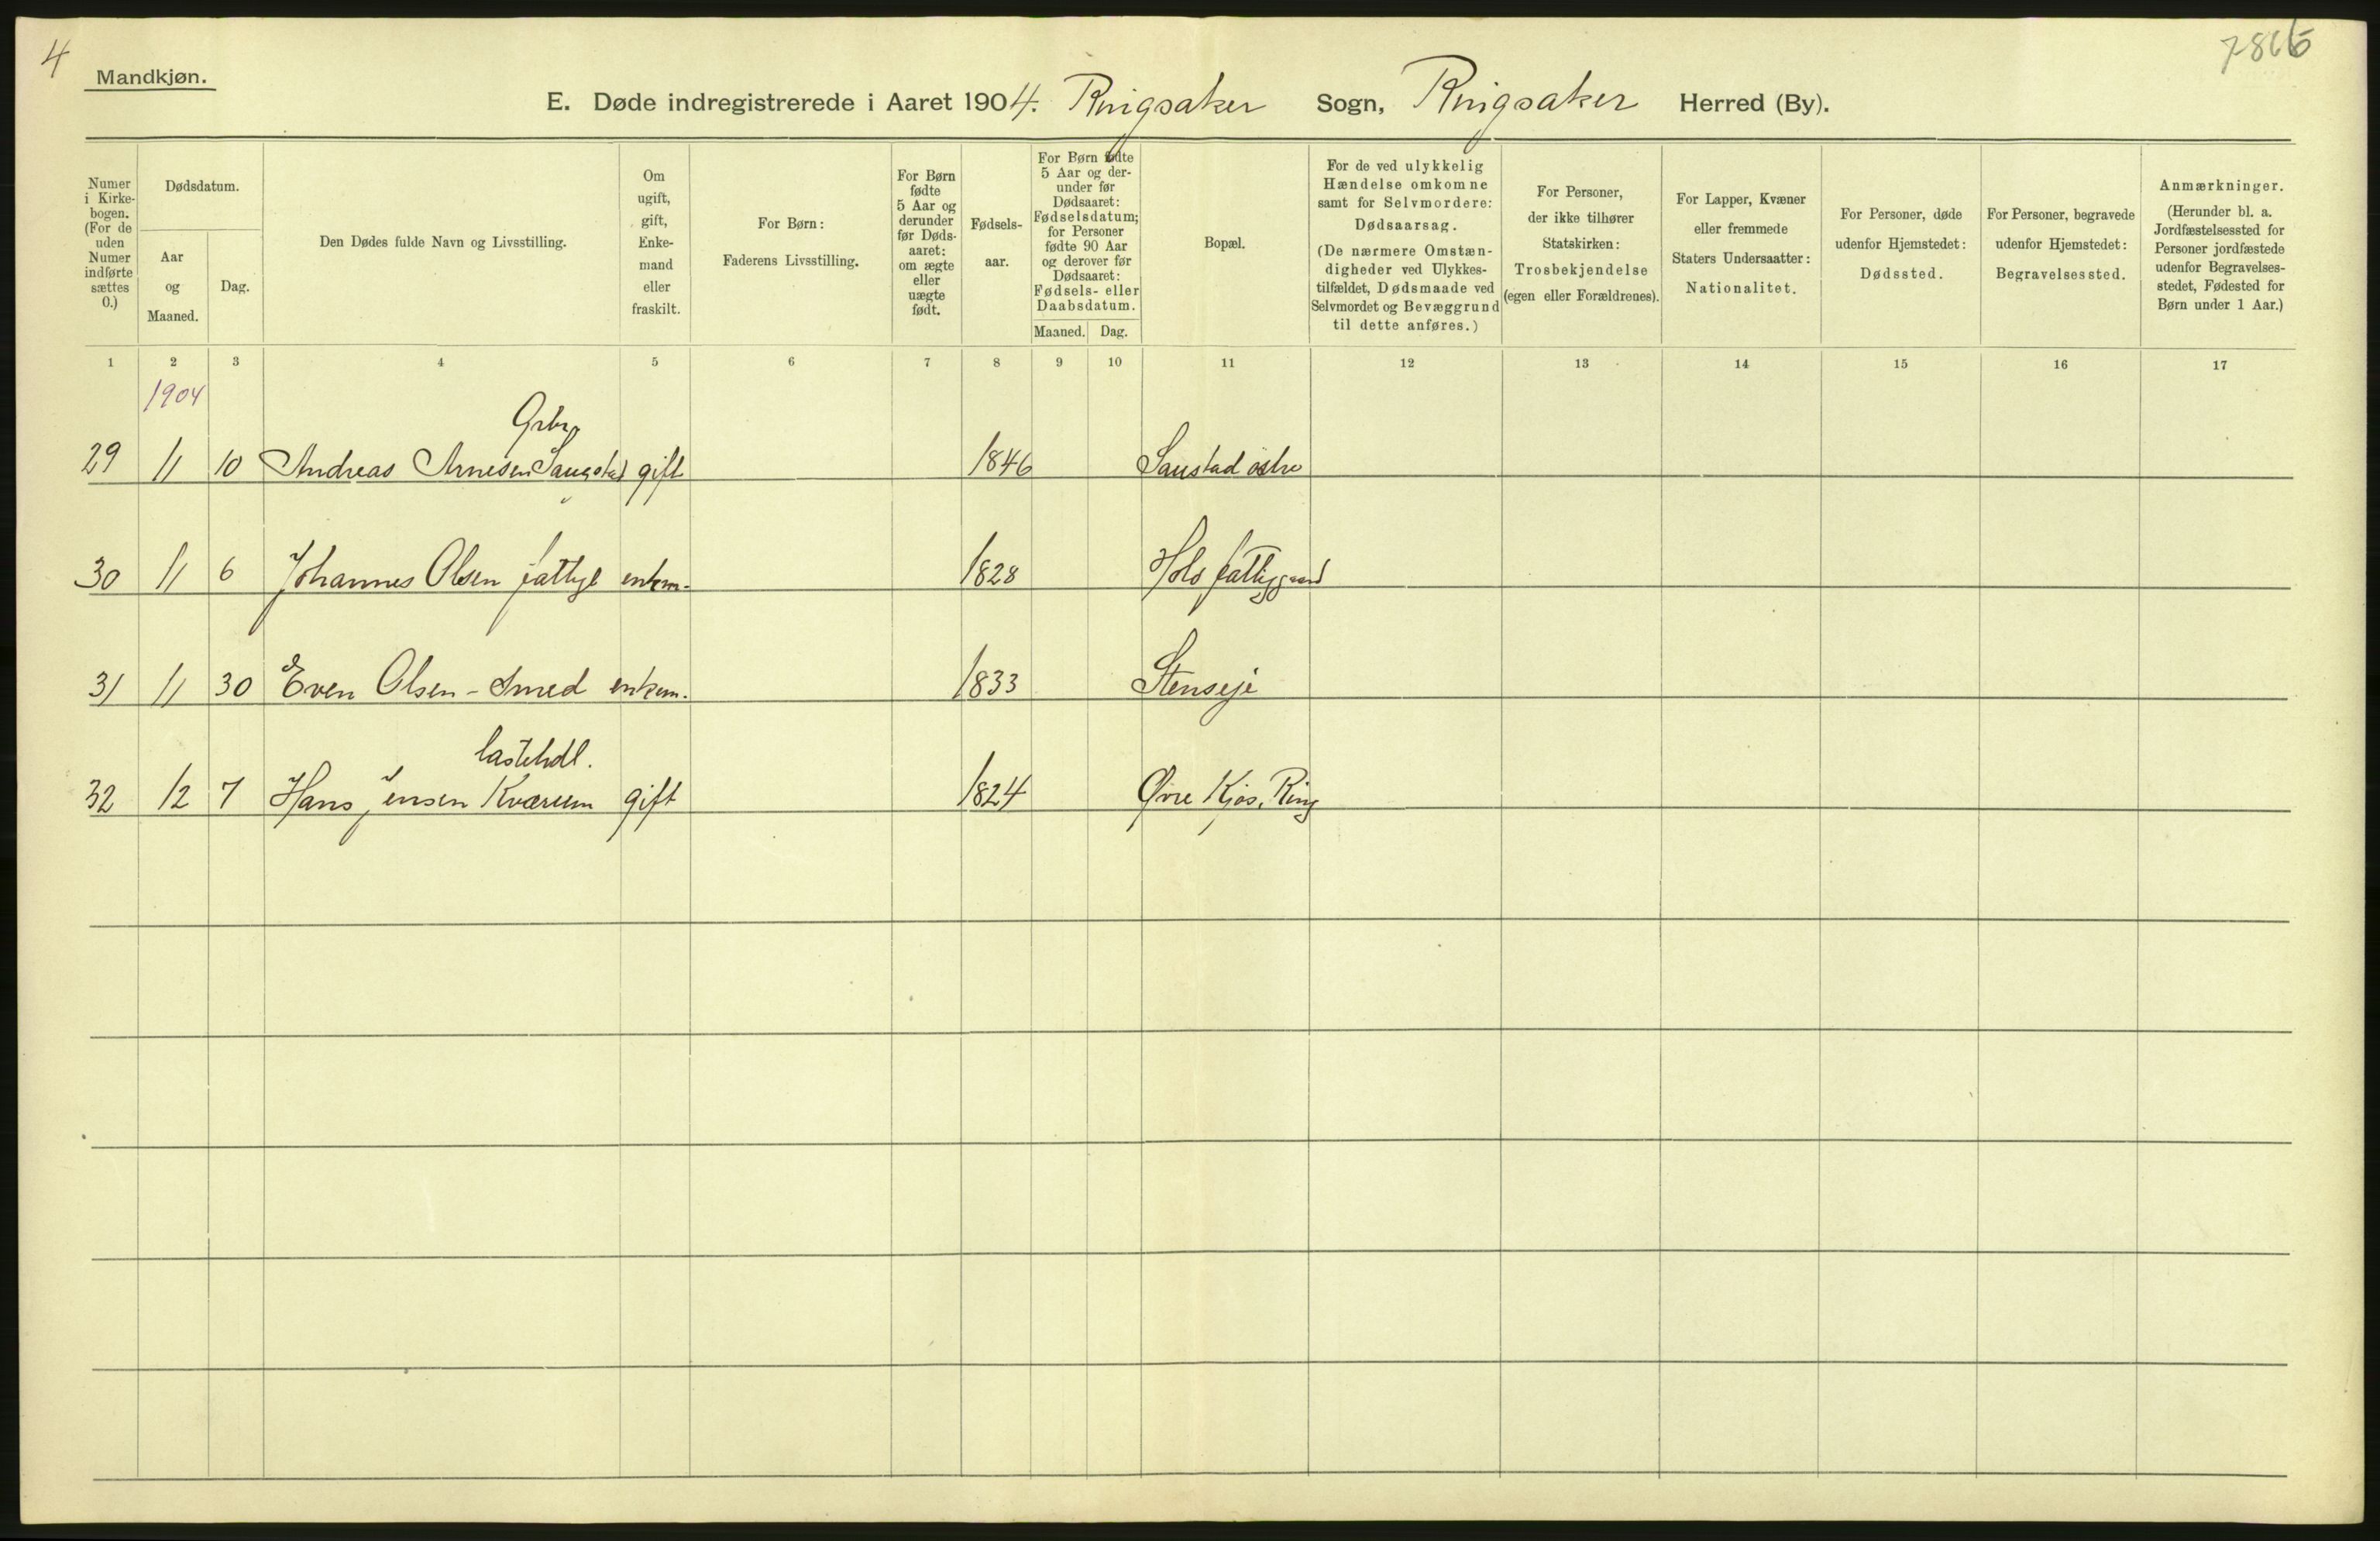 4
7865
Mandkjøn.
E. Døde indregistrerede i Aaret 1904. Ringsaker Sogn, Ringsaker Herred (By).
Numer i Kirkebogen. (For de uden Numer indførte sættes 0.)
Dødsdatum.
Aar og Maaned.
Dag.
Den Dødes fulde Navn og Livsstilling.
Om ugift, gift, Enkemand eller fraskilt.
For Børn: Faderens Livsstilling.
For Børn fødte 5 Aar og derunder før Dødsaaret: om ægte eller uægte født.
Fødselsaar.
For Børn fødte 5 Aar og derunder før Dødsaaret: Fødselsdatum; for Personer fødte 90 Aar og derover før Dødsaaret: Fødsels- eller Daabsdatum.
Maaned. Dag.
Bopæl.
For de ved ulykkelig Hændelse omkomne samt for Selvmordere: Dødsaarsag. (De nærmere Omstændigheder ved Ulykkestilfældet, Dødsmaade ved Selvmordet og Bevæggrund til dette anføres.)
For Personer, der ikke tilhører Statskirken: Trosbekjendelse (egen eller Forældrenes).
For Lapper, Kvæner eller fremmede Staters Undersaatter: Nationalitet.
For Personer, døde udenfor Hjemstedet: Dødssted.
For Personer, begravede udenfor Hjemstedet: Begravelsessted.
Anmærkninger. (Herunder bl. a. Jordfæstelsessted for Personer jordfæstede udenfor Begravelsesstedet, Fødested for Børn under 1 Aar.)
1 2 3 4 5 6 7 8 9 10 11 12 13 14 15 16 17
1904
Grbr.
29 11 10 Andreas Arnesen Saugstad gift 1846 Saustad østre
30 11 6 Johannes Olsen fattigl enkem. 1828 Hols fattiggaard
31 11 30 Even Olsen - Smed enkem. 1833 Stenseje
32 12 7 Hans Jensen Kværum gift 1824 Øvre Kjos, Ring